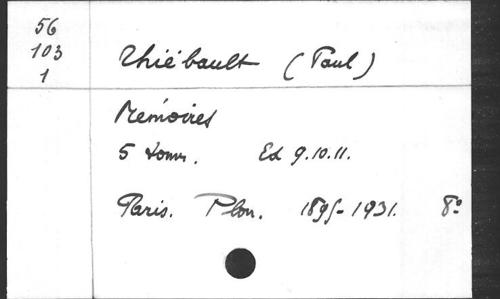 56
103
1
Thiébault (Paul)
Mémoires
5 tomes. Ed 9.10.11.
Paris. Plon. 1895-1931. 8º